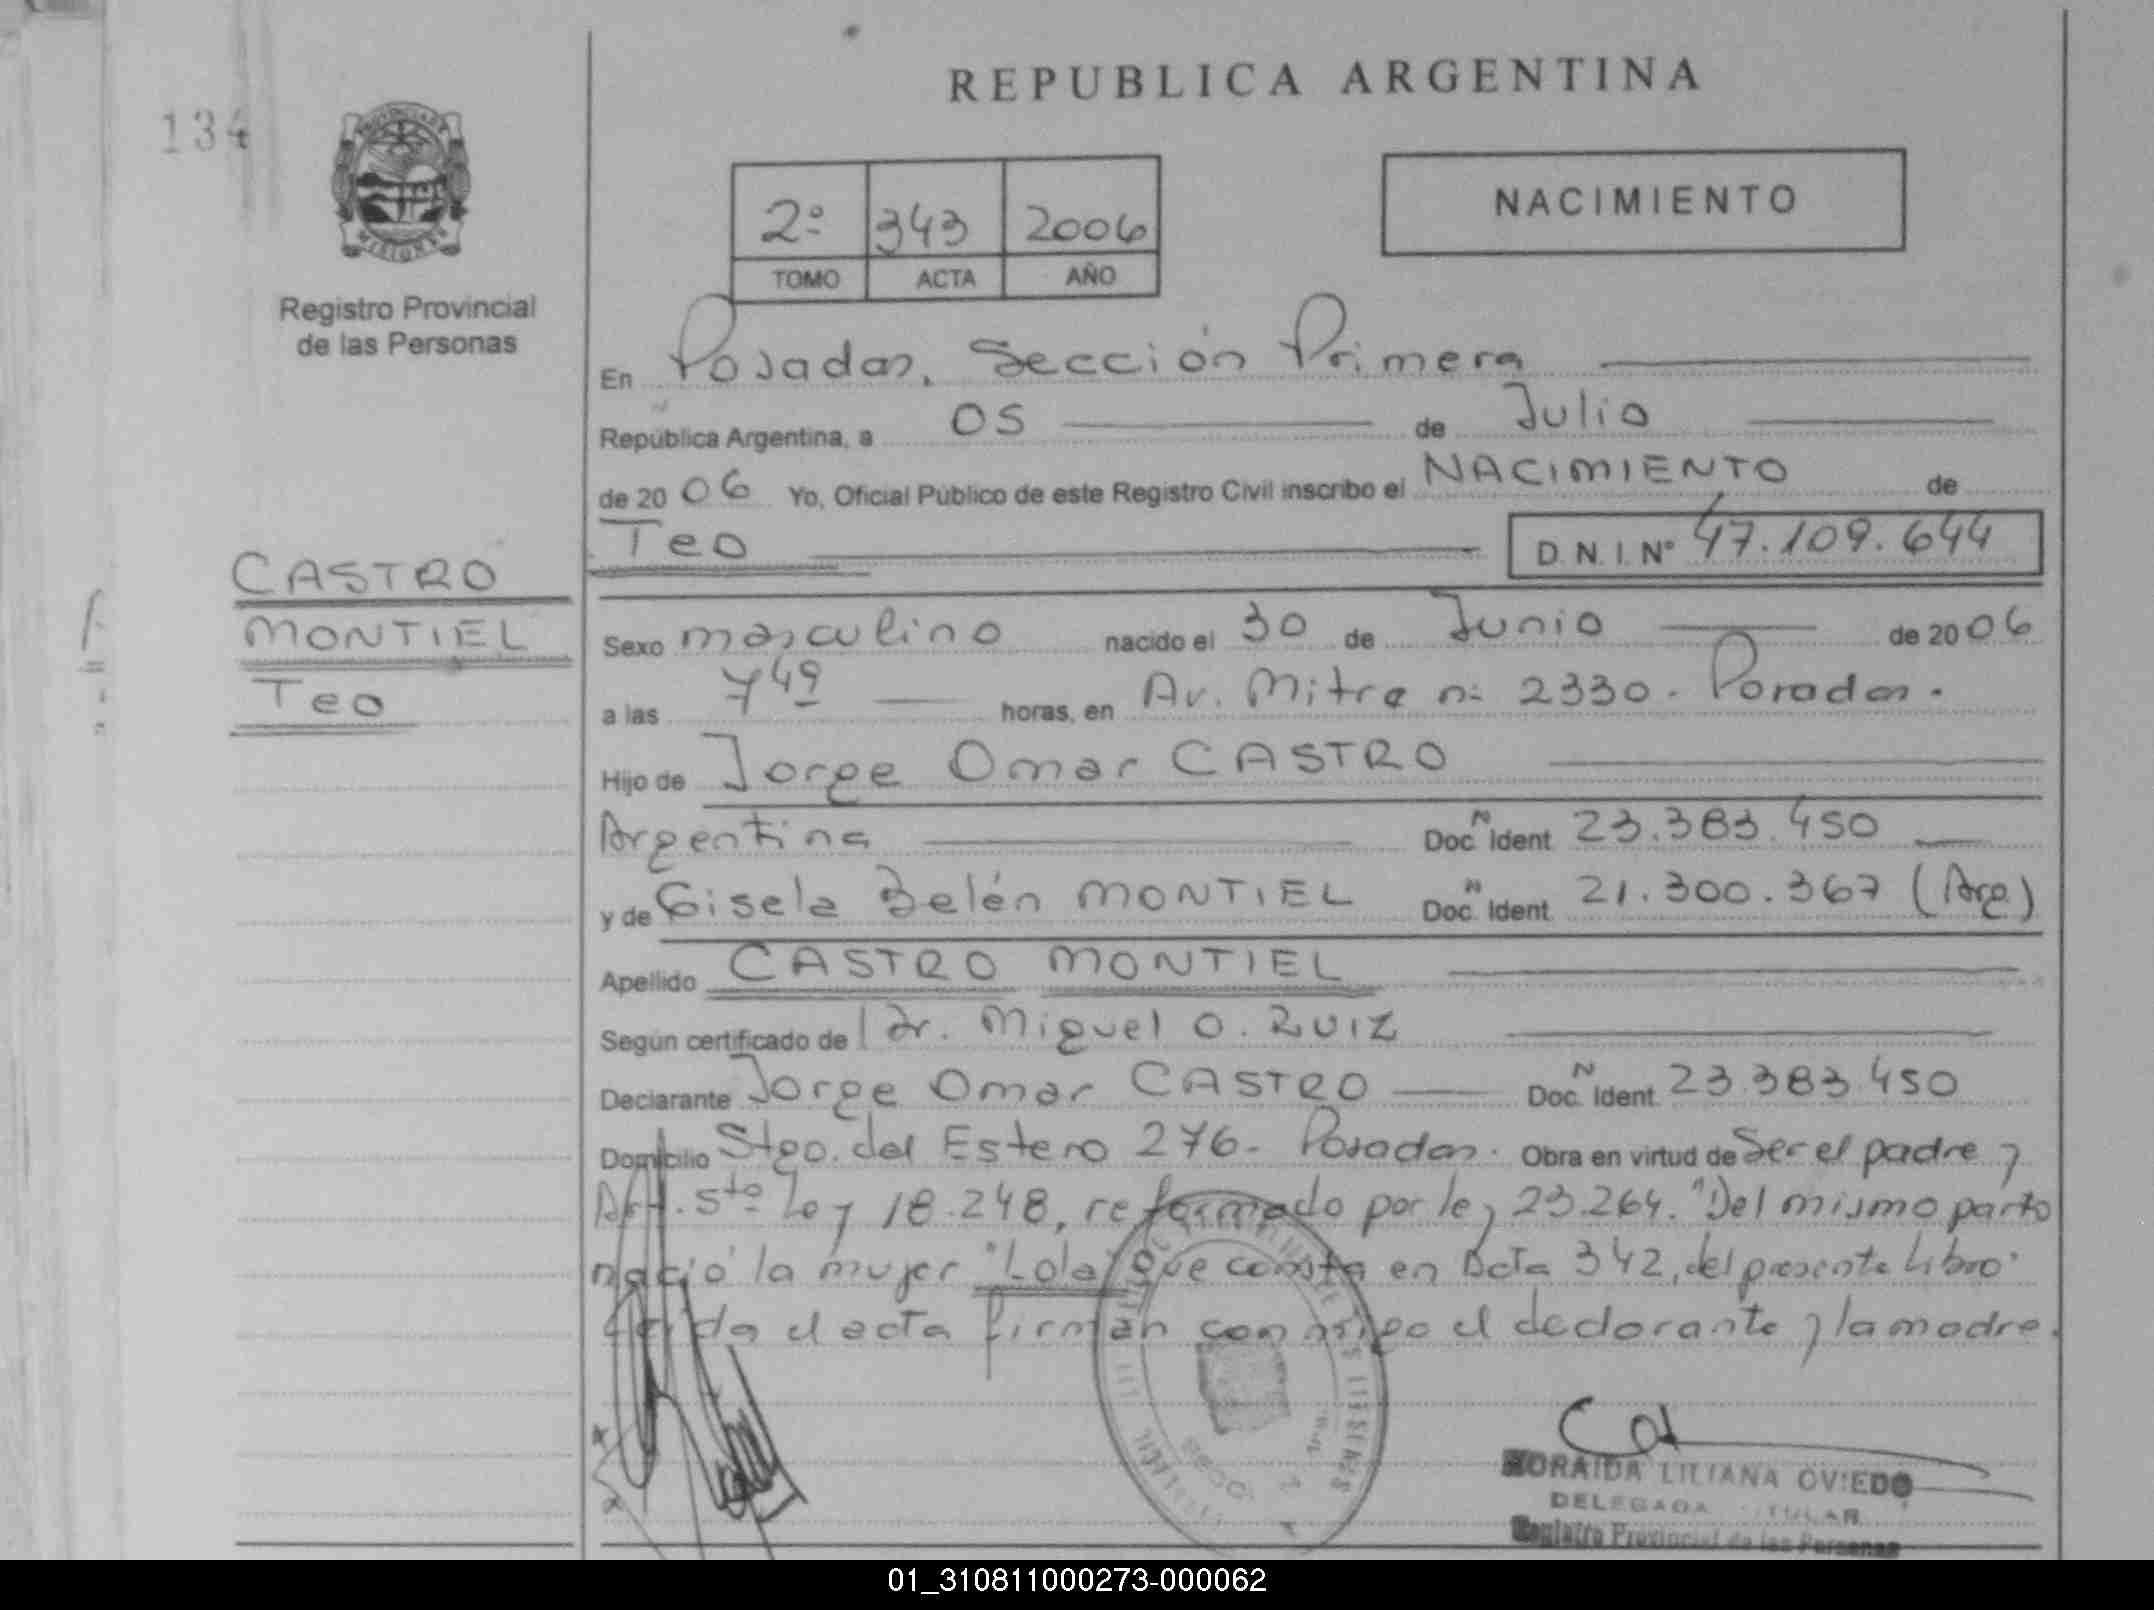 134
REPUBLICA ARGENTINA
PROVINCIA DE
MISIONES
Registro Provincial
de las Personas
2º 343 2006
TOMO ACTA AÑO
NACIMIENTO
En Posadas, Sección Primera
República Argentina, a 05 de Julio
de 2006 Yo, Oficial Público de este Registro Civil inscribo el NACIMIENTO de
Teo D.N.I. Nº 47.109.644
CASTRO
MONTIEL
Teo
Sexo masculino nacido el 30 de Junio de 2006
a las 7 49 horas, en Av. Mitre nº 2330. Posadas.
Hijo de Jorge Omar CASTRO
Argentina Doc. N Ident 23.383.450
y de Gisela Belén MONTIEL Doc. N Ident 21.300.367 (Arg)
Apellido CASTRO MONTIEL
Según certificado de Dr. Miguel O. RUIZ
Declarante Jorge Omar CASTRO Doc. N Ident. 23.383.450
Domicilio Stgo. del Estero 276. Posadas. Obra en virtud de Ser el padre y
Art. 5to Ley 18.248, reformado por ley 23.264. "Del mismo parto
nació la mujer "Lola" que consta en Acta 342, del presente Libro.
Leída el acta firman conmigo el declarante y la madre.
ZORAIDA LILIANA OVIEDO
DELEGADA TITULAR
Registro Provincial de las Personas
01_310811000273-000062